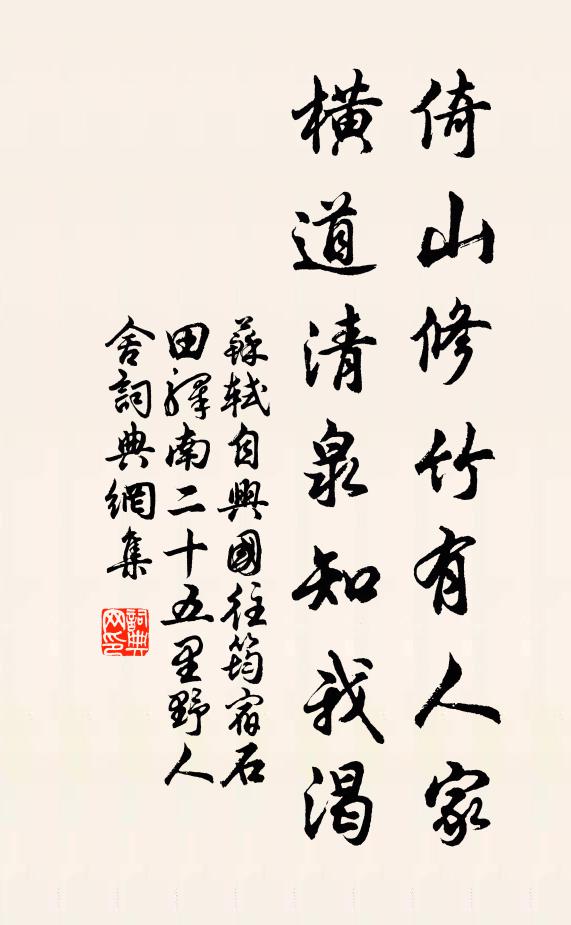 倚山修竹有人家
橫道清泉知我渴
蘇軾自興國往筠宿石
田驛南二十五里野人
舍詞典網集
詞典
网印